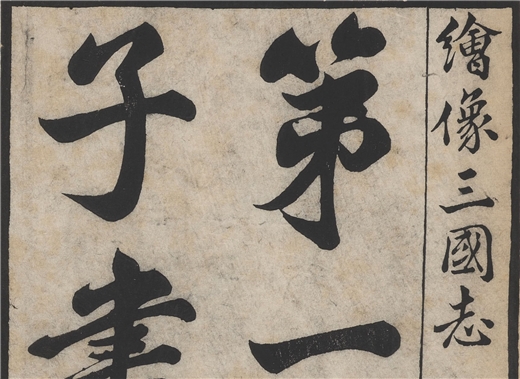 繪像三國志
第一
子書